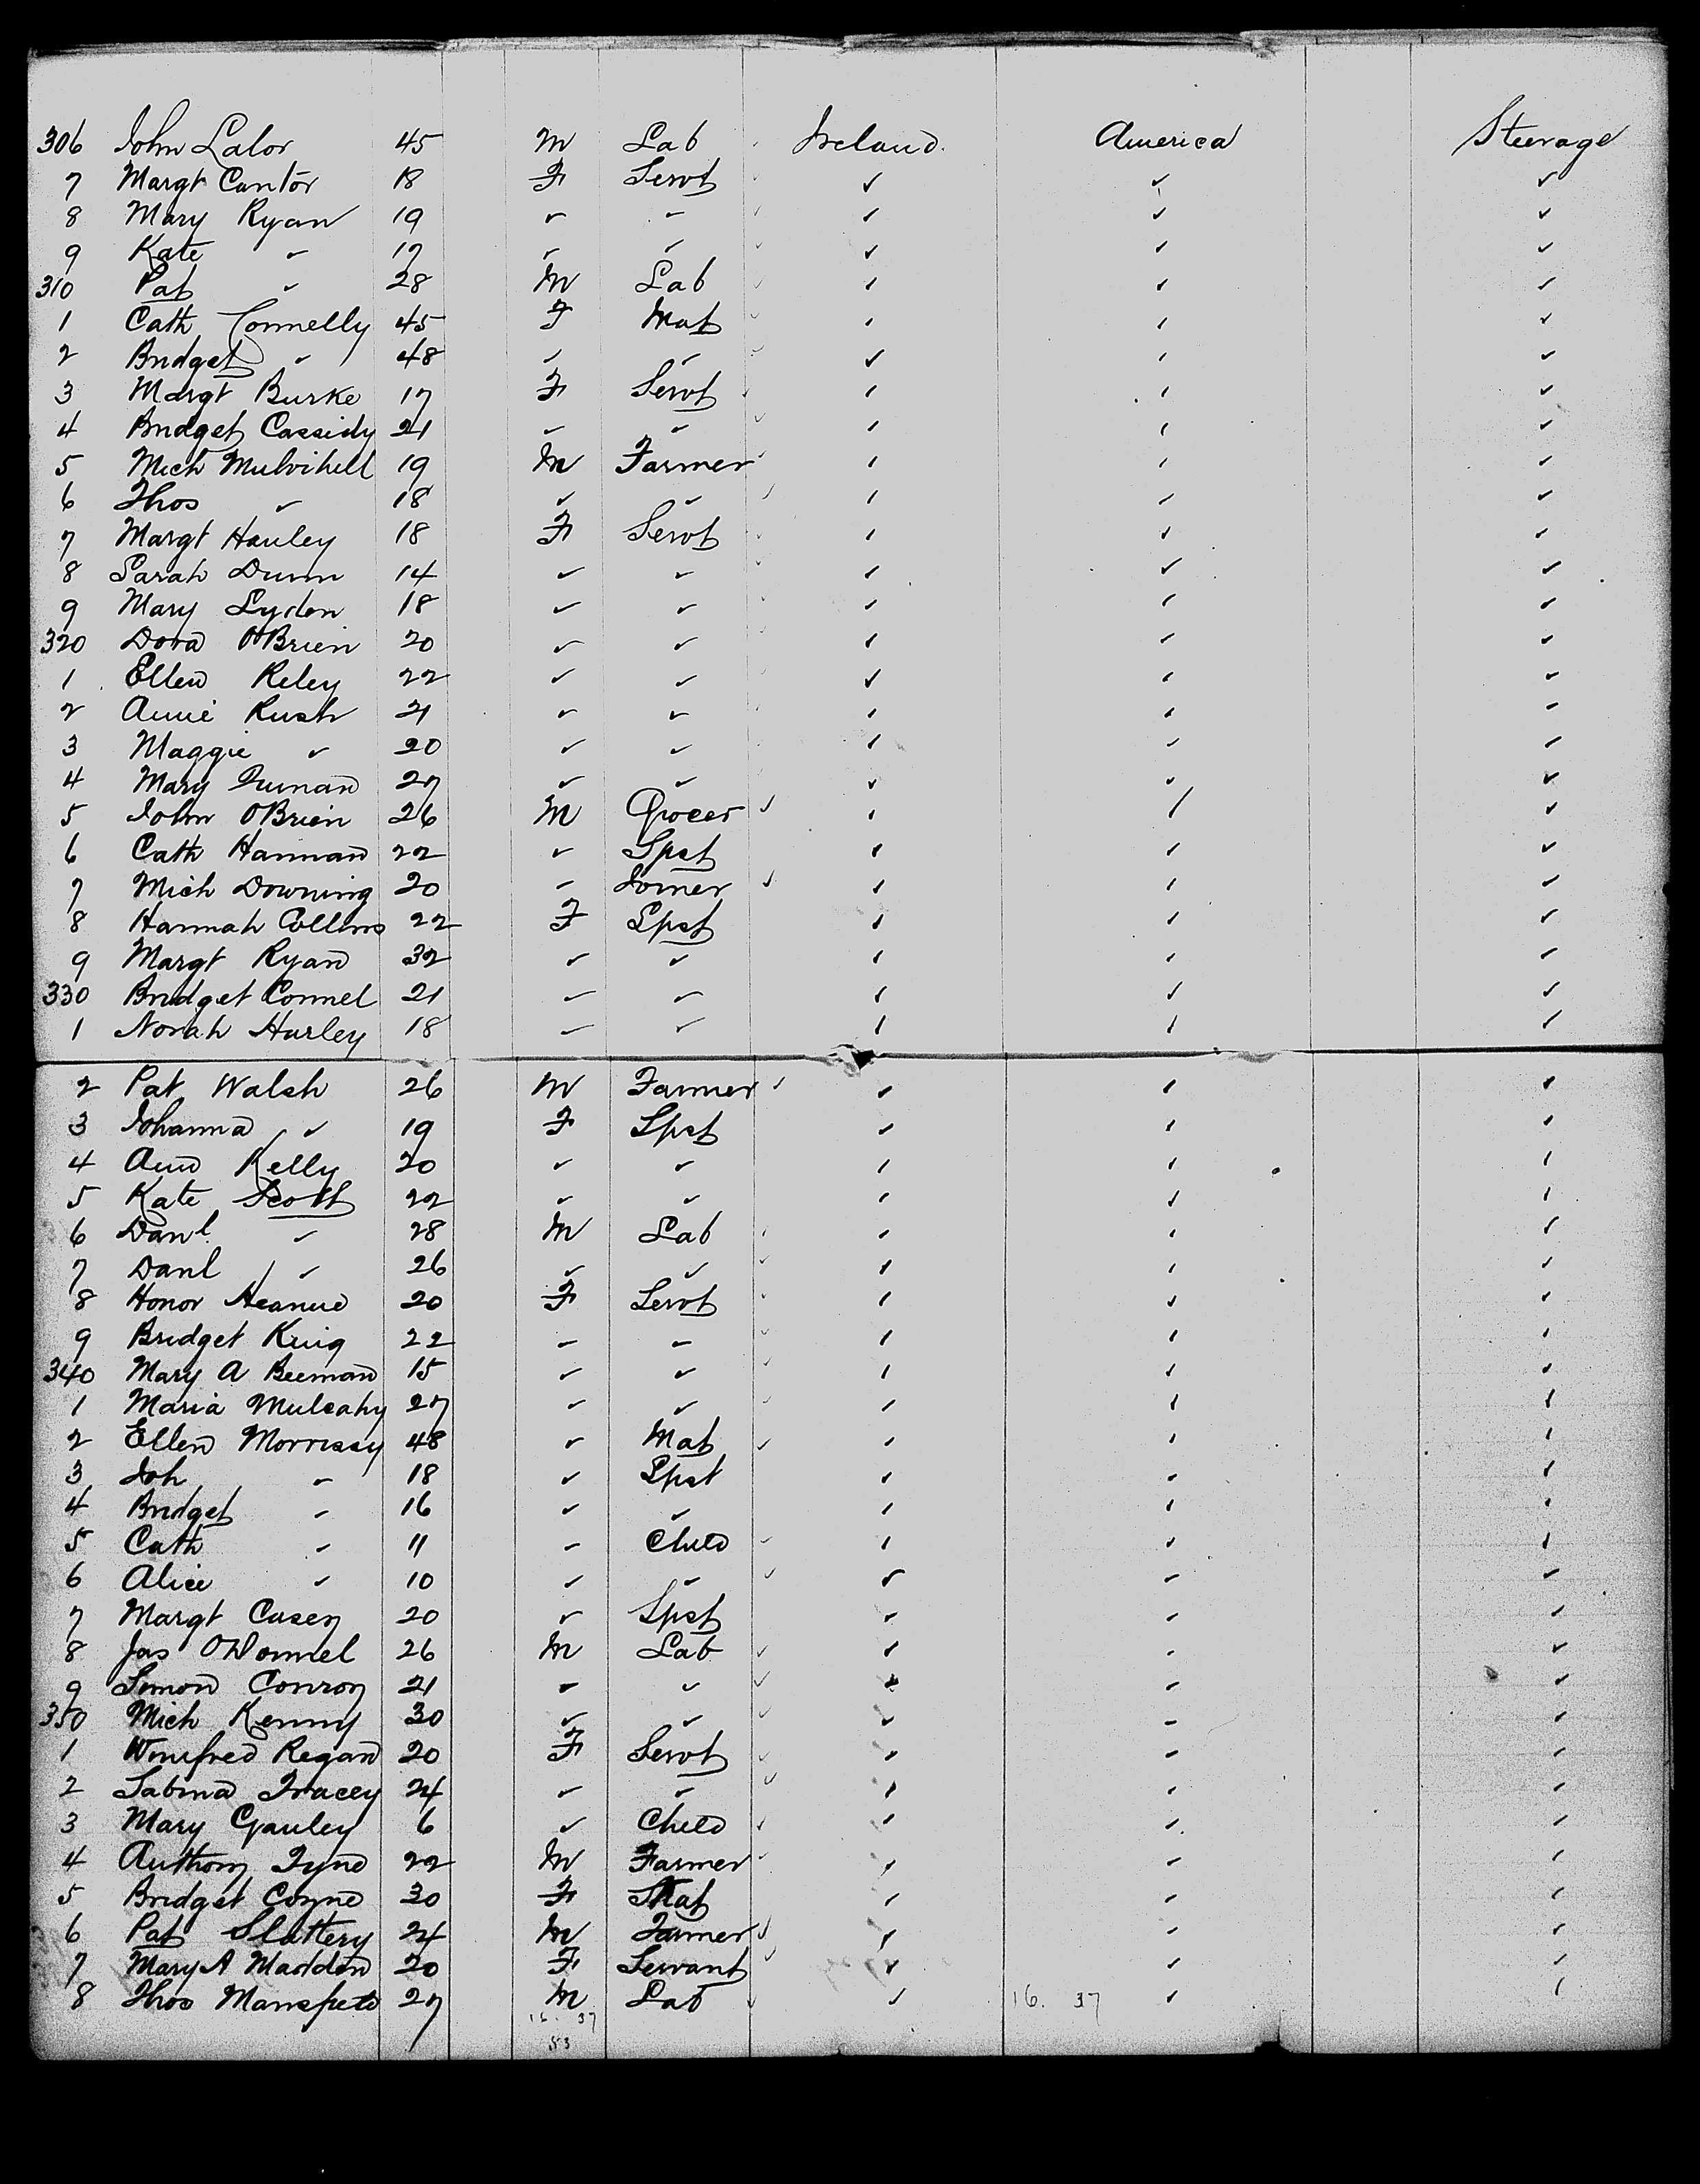 306 John Lalor 45 M Lab Ireland. America Steerage
7 Margt Cantor 18 F Servt ✓ ✓ ✓
8 Mary Ryan 19 ✓ ✓ ✓ ✓ ✓
9 Kate ✓ 17 ✓ ✓ ✓ ✓ ✓
310 Pat ✓ 28 M Lab ✓ ✓ ✓
1 Cath Connelly 45 F Mat ✓ ✓ ✓
2 Bridget ✓ 48 ✓ ✓ ✓ ✓ ✓
3 Margt Burke 17 F Servt ✓ ✓ ✓
4 Bridget Cassidy 21 ✓ ✓ ✓ ✓ ✓
5 Mich Mulvihill 19 M Farmer ✓ ✓ ✓
6 Thos ✓ 18 ✓ ✓ ✓ ✓ ✓
7 Margt Hauley 18 F Servt ✓ ✓ ✓
8 Sarah Dunn 14 ✓ ✓ ✓ ✓ ✓
9 Mary Lyden 18 ✓ ✓ ✓ ✓ ✓
320 Dora O'Brien 20 ✓ ✓ ✓ ✓ ✓
1 Ellen Reley 22 ✓ ✓ ✓ ✓ ✓
2 Annie Rush 21 ✓ ✓ ✓ ✓ ✓
3 Maggie ✓ 20 ✓ ✓ ✓ ✓ ✓
4 Mary 27 ✓ ✓ ✓ ✓ ✓
5 John O'Brien 26 M Grocer ✓ ✓ ✓ ✓
6 Cath Hannan 22 ✓ Spst ✓ ✓ ✓
7 Mich Downing 20 ✓ Joiner ✓ ✓ ✓ ✓
8 Hannah Collins 22 F Spst ✓ ✓ ✓
9 Margt Ryan 32 ✓ ✓ ✓ ✓ ✓
330 Bridget Connel 21 ✓ ✓ ✓ ✓ ✓
1 Norah Hurley 18 ✓ ✓ ✓ ✓ ✓
2 Pat Walsh 26 M Farmer ✓ ✓ ✓ ✓
3 Johanna ✓ 19 F Spst ✓ ✓ ✓
4 Ann Kelly 20 ✓ ✓ ✓ ✓ ✓
5 Kate Scott 22 ✓ ✓ ✓ ✓ ✓
6 Danl ✓ 28 M Lab ✓ ✓ ✓
7 Danl ✓ 26 ✓ ✓ ✓ ✓ ✓
8 Honor Heanue 20 F Servt ✓ ✓ ✓
9 Bridget King 22 ✓ ✓ ✓ ✓ ✓
340 Mary A Beeman 15 ✓ ✓ ✓ ✓ ✓
1 Maria Mulcahy 27 ✓ ✓ ✓ ✓ ✓
2 Ellen Morrissy 48 ✓ Mat ✓ ✓ ✓ ✓
3 Joh ✓ 18 ✓ Spst ✓ ✓ ✓
4 Bridget ✓ 16 ✓ ✓ ✓ ✓ ✓
5 Cath ✓ 11 ✓ Child ✓ ✓ ✓ ✓
6 Alice ✓ 10 ✓ ✓ ✓ ✓ ✓ ✓
7 Margt Casey 20 ✓ Spst ✓ ✓ ✓
8 Jas O'Donnel 26 M Lab ✓ ✓ ✓ ✓
9 Simon Conroy 21 ✓ ✓ ✓ ✓ ✓ ✓
350 Mich Kenny 30 ✓ ✓ ✓ ✓ ✓ ✓
1 Winifred Regan 20 F Servt ✓ ✓ ✓ ✓
2 Sabina Tracey 24 ✓ ✓ ✓ ✓ ✓ ✓
3 Mary Gauley 6 ✓ Child ✓ ✓ ✓ ✓
4 Anthony Tyne 22 M Farmer ✓ ✓ ✓ ✓
5 Bridget Coyne 30 F Mat ✓ ✓ ✓
6 Pat Slattery 24 M Farmer ✓ ✓ ✓ ✓
7 Mary A Madden 20 F Servant ✓ ✓ ✓ ✓
8 Thos 27 M Lab ✓ ✓ 16. 37 ✓ ✓
16. 37
53